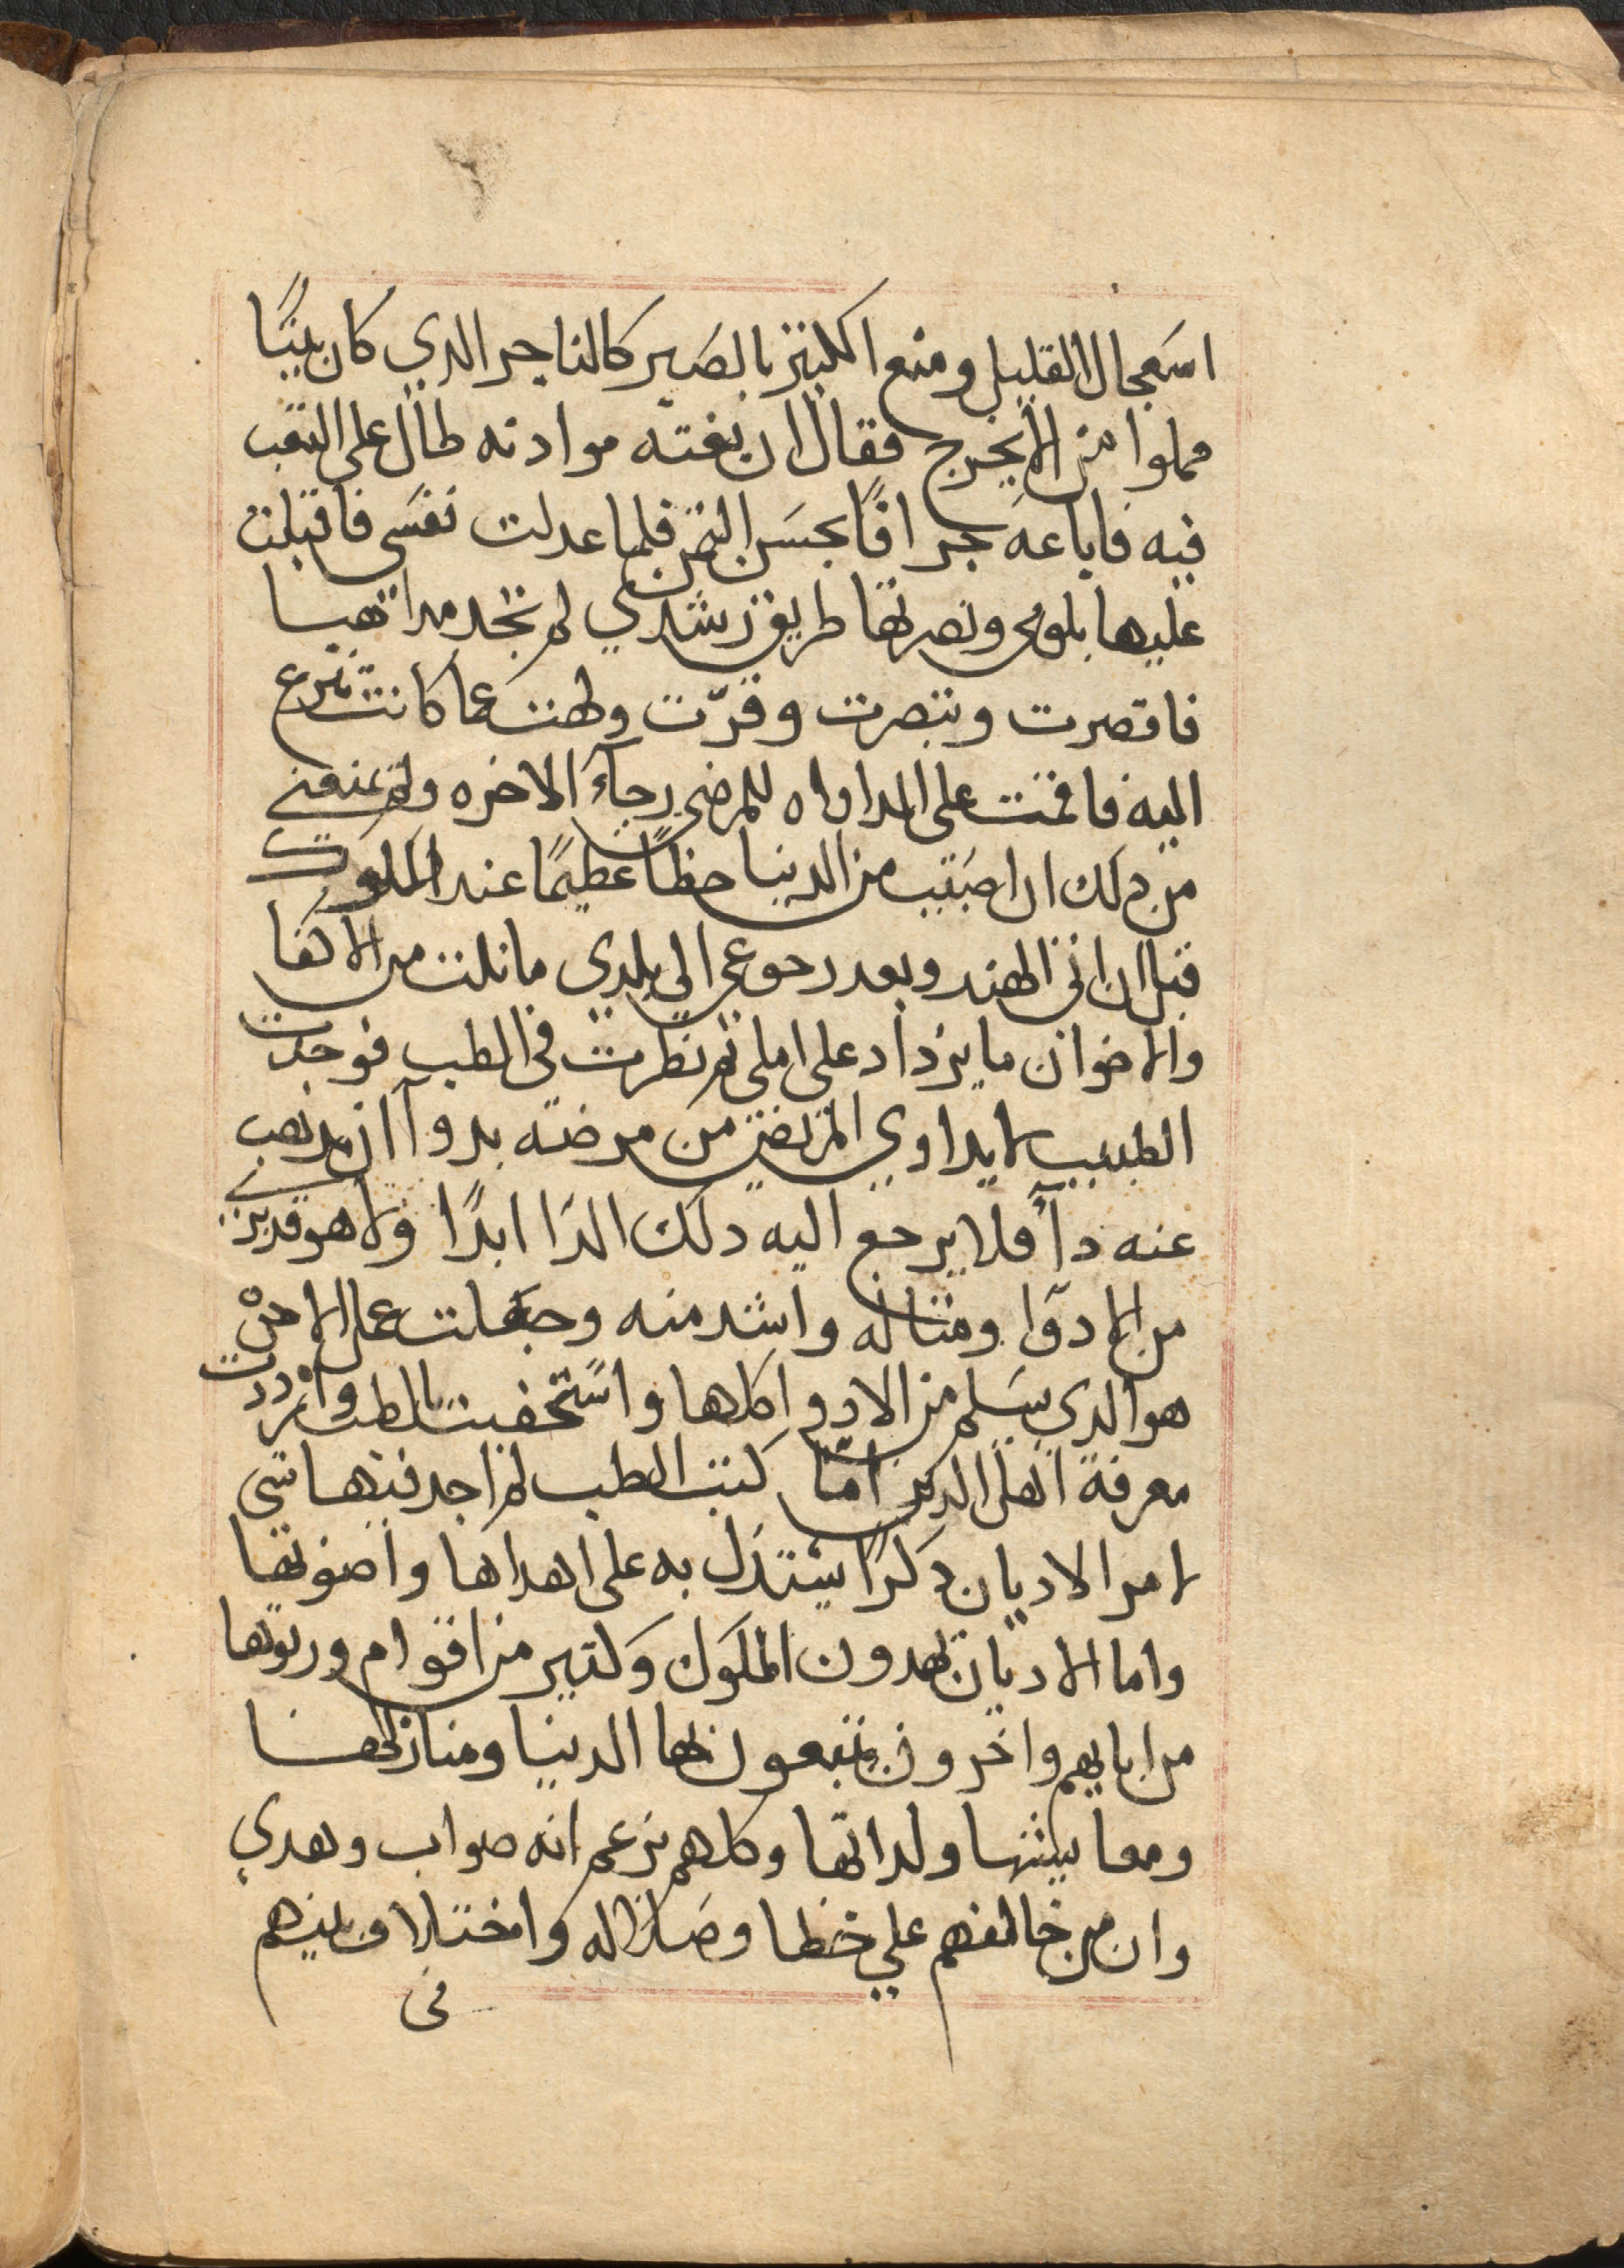 استعجال القليل ومنع الكثير بالصبر كالتاجر الذي كان بيتًا
مملوا من الابخرج فقال ان بعته موادنه طال على التعب
فيه فاباعه جزافًا بحسن الثمن فلما عدلت نفسي فاقبلت
عليها بلومي وبصرتها طريق رشدي لم تجد مذاهبا
فاقصرت وتبصرت وقرّت ولهت عما كانت تنزع
اليه فاقمت على المداواه للمرضى رجآء الاخره ولم يمنعني
من ذلك ان اصيب من الدنيا حظًا عظيمًا عند الملوك
قبل ان اتى الهند وبعد رجوعى الي بلدي ما نلت من الاكفا
والاخوان ما يزداد على املى ثم نظرت فى الطب فوجدت
الطبيب لا يداوي المريض من مرضه بدوآ ان يذهب
عنه دآ فلا يرجع اليه ذلك الدا ابدًا ولا هو قد يرى
من الادوا ومثاله واشد منه وجعلت عمل الاخره
هو الذي يسلم من الادوا كلها واستخفيت بالطب واردت
معرفة اهل الدين امّا كتب الطب لم اجد فيها شى
لامر الاديان ذكرًا يستدل به على اهداها واصوبها
واما الاديان يهدون الملوك وكثير من اقوام ورثوها
من ابايهم واخرون يتبعون بها الدنيا ومنازلها
ومعايشها ولداتها وكلهم يزعم انه صواب وهدي
وان من خالفهم علي خطا وضلاله واختلاف بينهم
فى